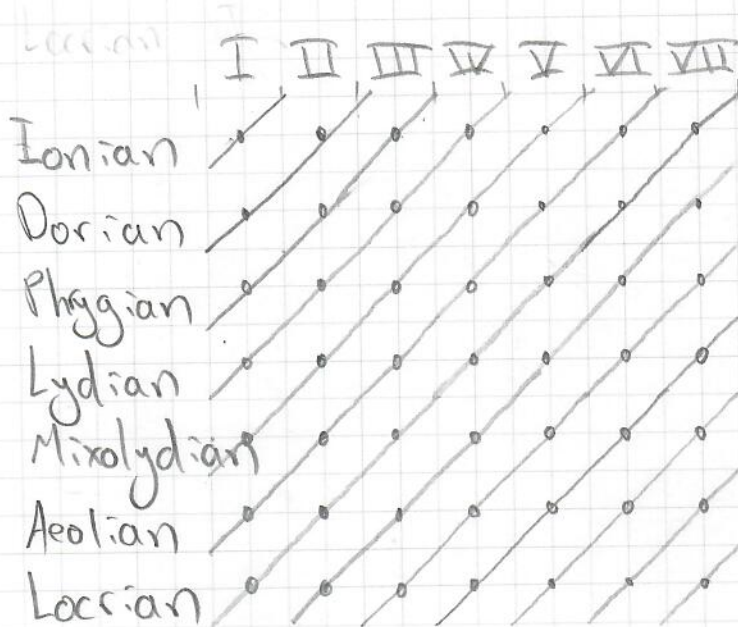 Locrian
I II III IV V VI VII
Ionian
Dorian
Phrygian
Lydian
Mixolydian
Aeolian
Locrian